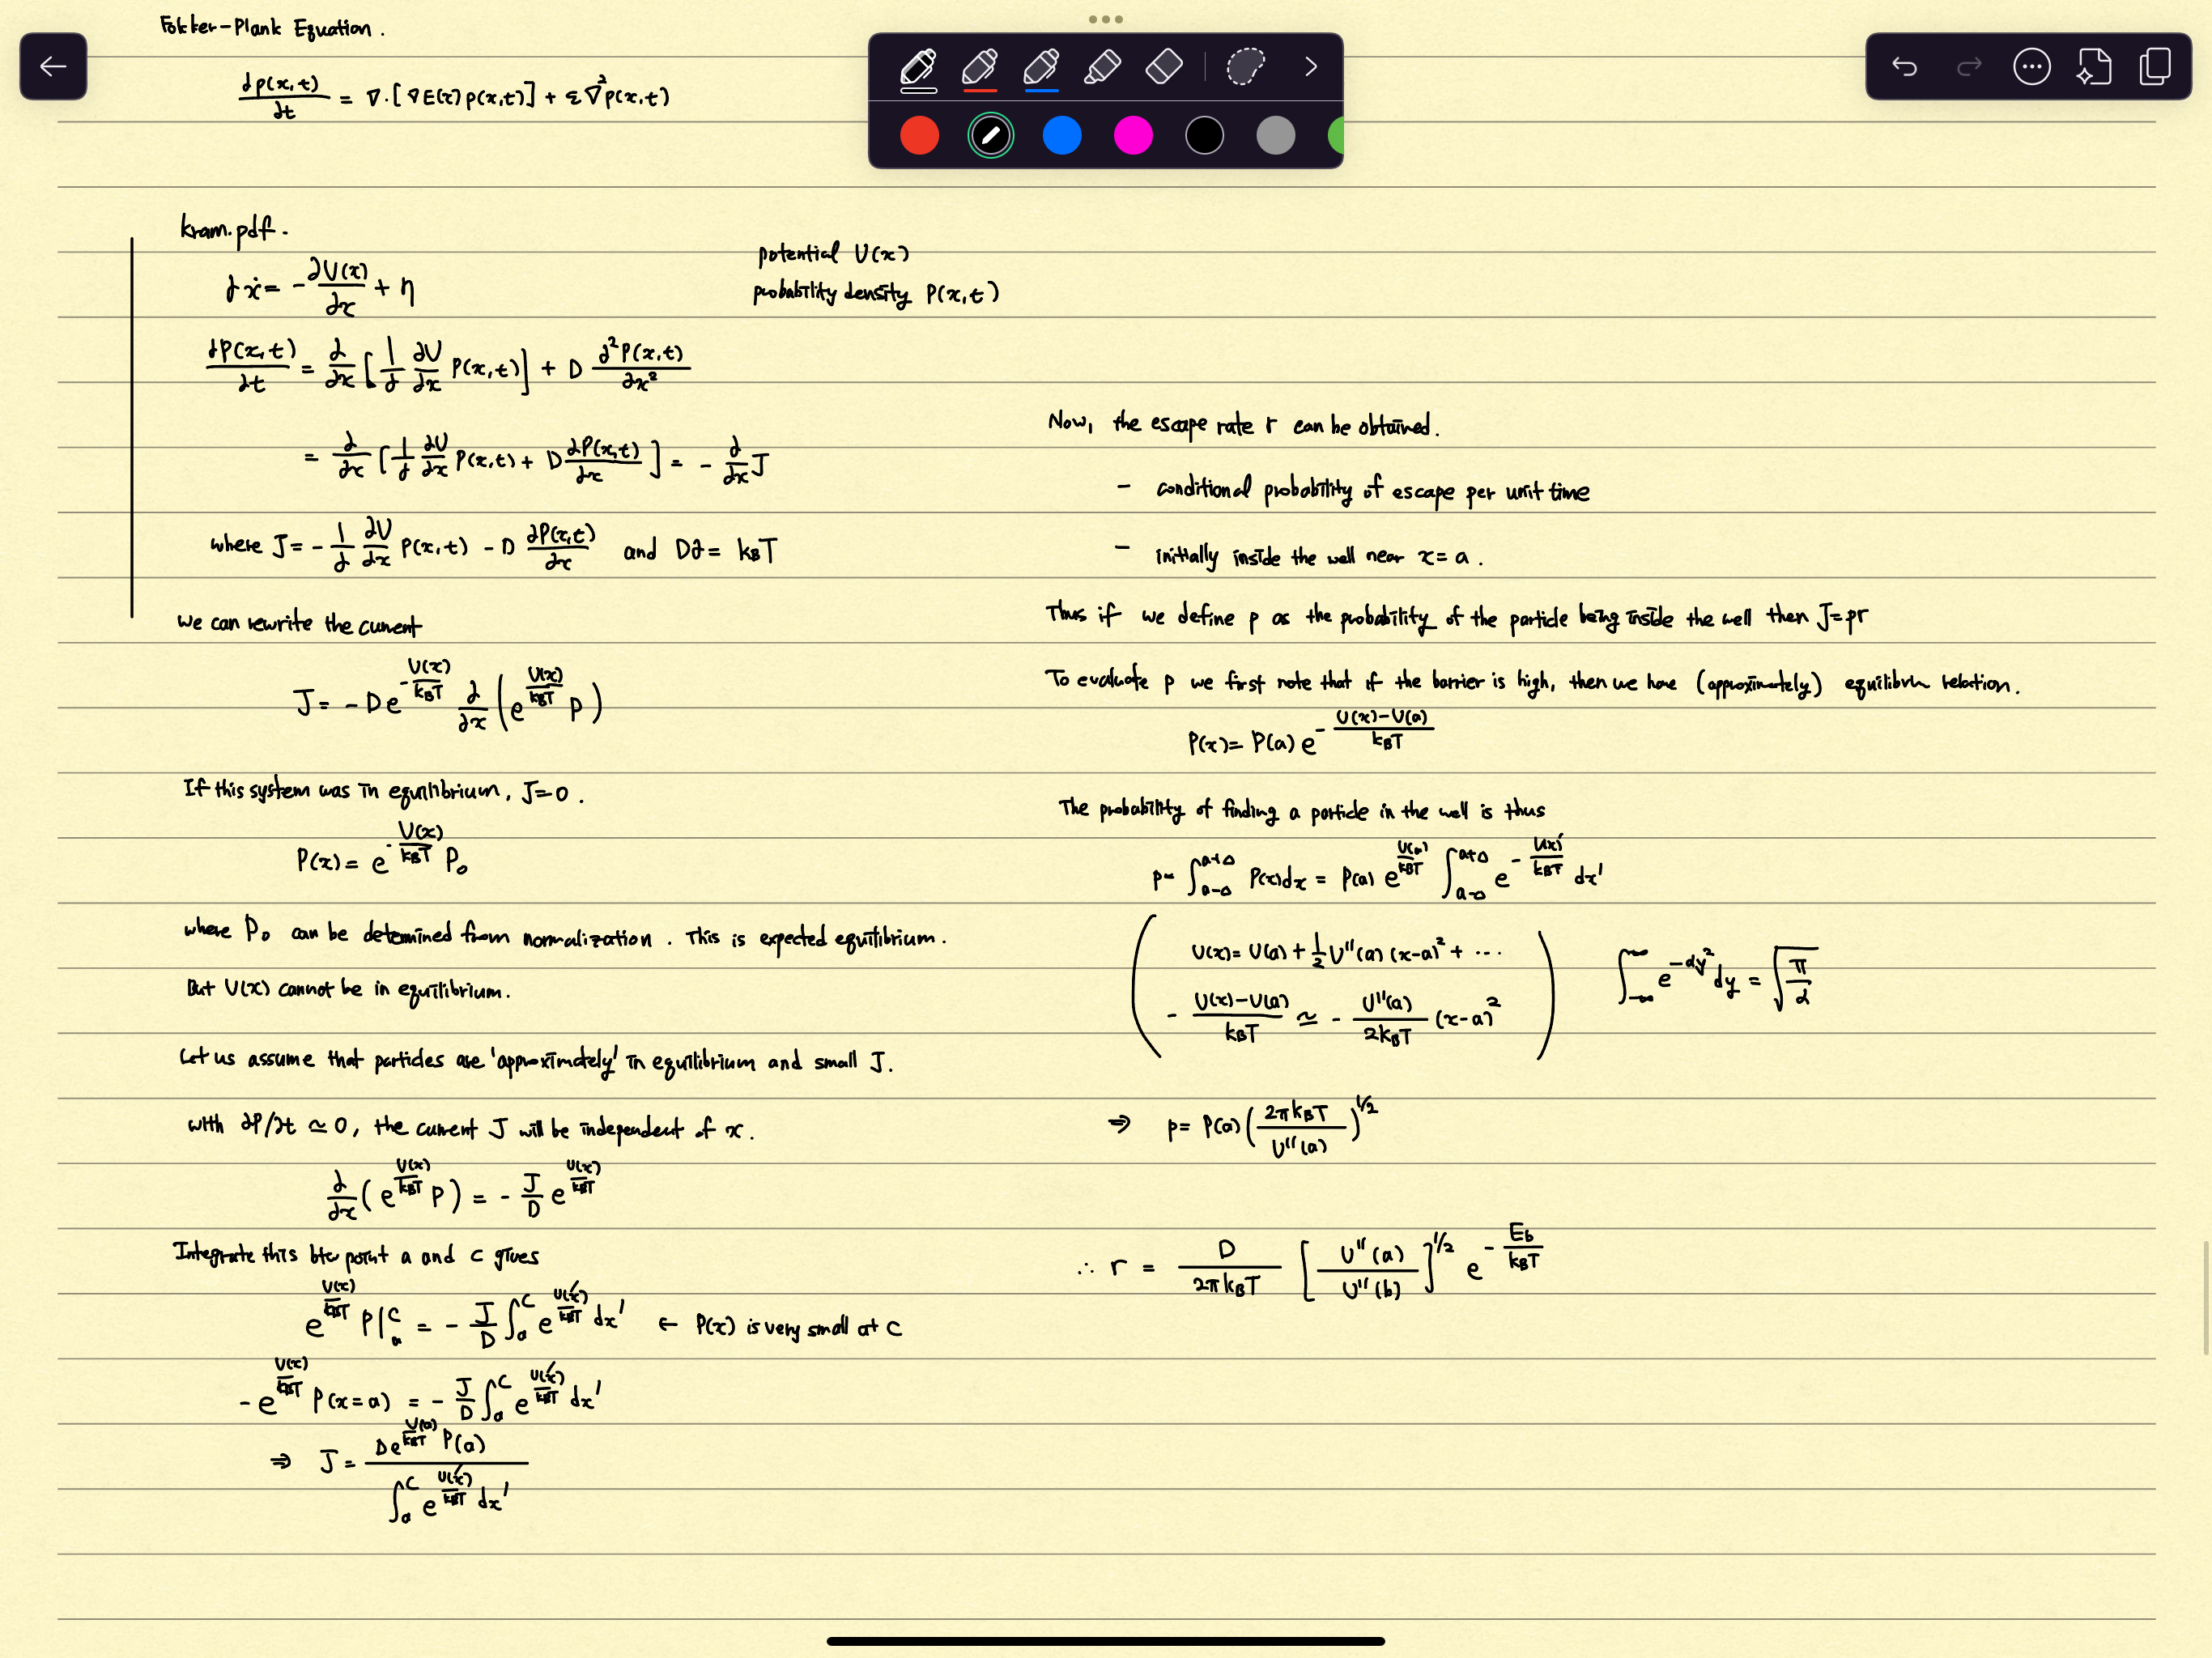 Fokker-Plank Equation.
∂p(x,t)/∂t = ∇·[∇E(x)p(x,t)] + ε∇²p(x,t)
kram.pdf.
∂ẋ = -∂U(x)/∂x + η
potential U(x)
probability density P(x,t)
∂P(x,t)/∂t = ∂/∂x [1/∂ ∂U/∂x P(x,t)] + D ∂²P(x,t)/∂x²
= ∂/∂x [1/∂ ∂U/∂x P(x,t) + D ∂P(x,t)/∂x] = -∂/∂x J
where J = -1/∂ ∂U/∂x P(x,t) - D ∂P(x,t)/∂x and D∂ = kBT
we can rewrite the current
J = -D e^(-U(x)/kBT) ∂/∂x (e^(U(x)/kBT) P)
If this system was in equilibrium, J=0.
P(x) = e^(-U(x)/kBT) P₀
where P₀ can be determined from normalization. This is expected equilibrium.
But U(x) cannot be in equilibrium.
Let us assume that particles are 'approximately' in equilibrium and small J.
with ∂P/∂t ≃ 0, the current J will be independent of x.
∂/∂x (e^(U(x)/kBT) P) = -J/D e^(U(x)/kBT)
Integrate this btw point a and c gives
e^(U(x)/kBT) P|ₐᶜ = -J/D ∫ₐᶜ e^(U(x')/kBT) dx' ← P(x) is very small at c
-e^(U(x)/kBT) P(x=a) = -J/D ∫ₐᶜ e^(U(x')/kBT) dx'
⇒ J = De^(U(a)/kBT) P(a) / ∫ₐᶜ e^(U(x')/kBT) dx'
Now, the escape rate r can be obtained.
- conditional probability of escape per unit time
- initially inside the well near x=a.
Thus if we define p as the probability of the particle being inside the well then J=pr
To evaluate p we first note that if the barrier is high, then we have (approximately) equilibrium relation.
P(x) = P(a) e^(-(U(x)-U(a))/kBT)
The probability of finding a particle in the well is thus
p = ∫_(a-Δ)^(a+Δ) P(x)dx = P(a) e^(U(a)/kBT) ∫_(a-Δ)^(a+Δ) e^(-U(x)'/kBT) dx'
( U(x) = U(a) + 1/2 U''(a) (x-a)² + ···
-(U(x)-U(a))/kBT ≃ -U''(a)/2kBT (x-a)² )
∫_(-∞)^(∞) e^(-αy²) dy = √(π/α)
⇒ p = P(a) (2πkBT/U''(a))^(1/2)
∴ r = D/2πkBT [U''(a)/U''(b)]^(1/2) e^(-Eb/kBT)